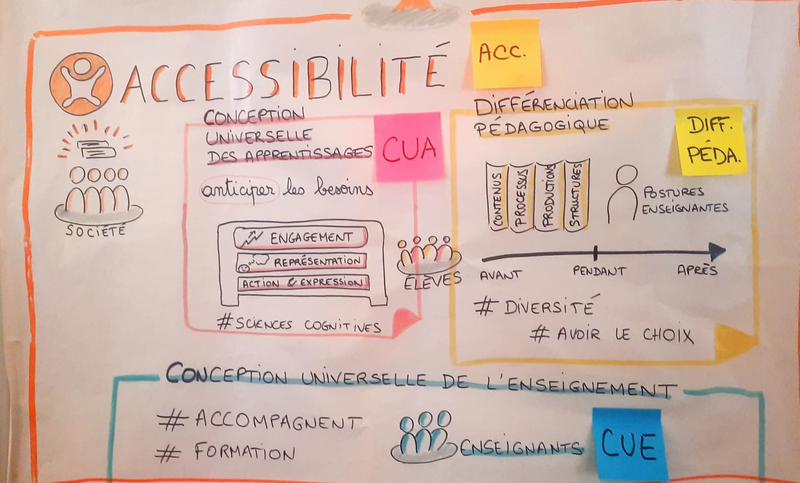 ACCESSIBILITÉ
ACC.
SOCIÉTÉ
CONCEPTION
UNIVERSELLE
DES APPRENTISSAGES
CUA
anticiper les besoins
ENGAGEMENT
REPRÉSENTATION
ACTION & EXPRESSION
#SCIENCES COGNITIVES
ÉLÈVES
DIFFÉRENCIATION
PÉDAGOGIQUE
DIFF.
PÉDA.
CONTENUS
PROCESSUS
PRODUCTIONS
STRUCTURES
POSTURES
ENSEIGNANTES
AVANT PENDANT APRÈS
# DIVERSITÉ
# AVOIR LE CHOIX
CONCEPTION UNIVERSELLE DE L'ENSEIGNEMENT
# ACCOMPAGNENT
# FORMATION
ENSEIGNANTS
CUE